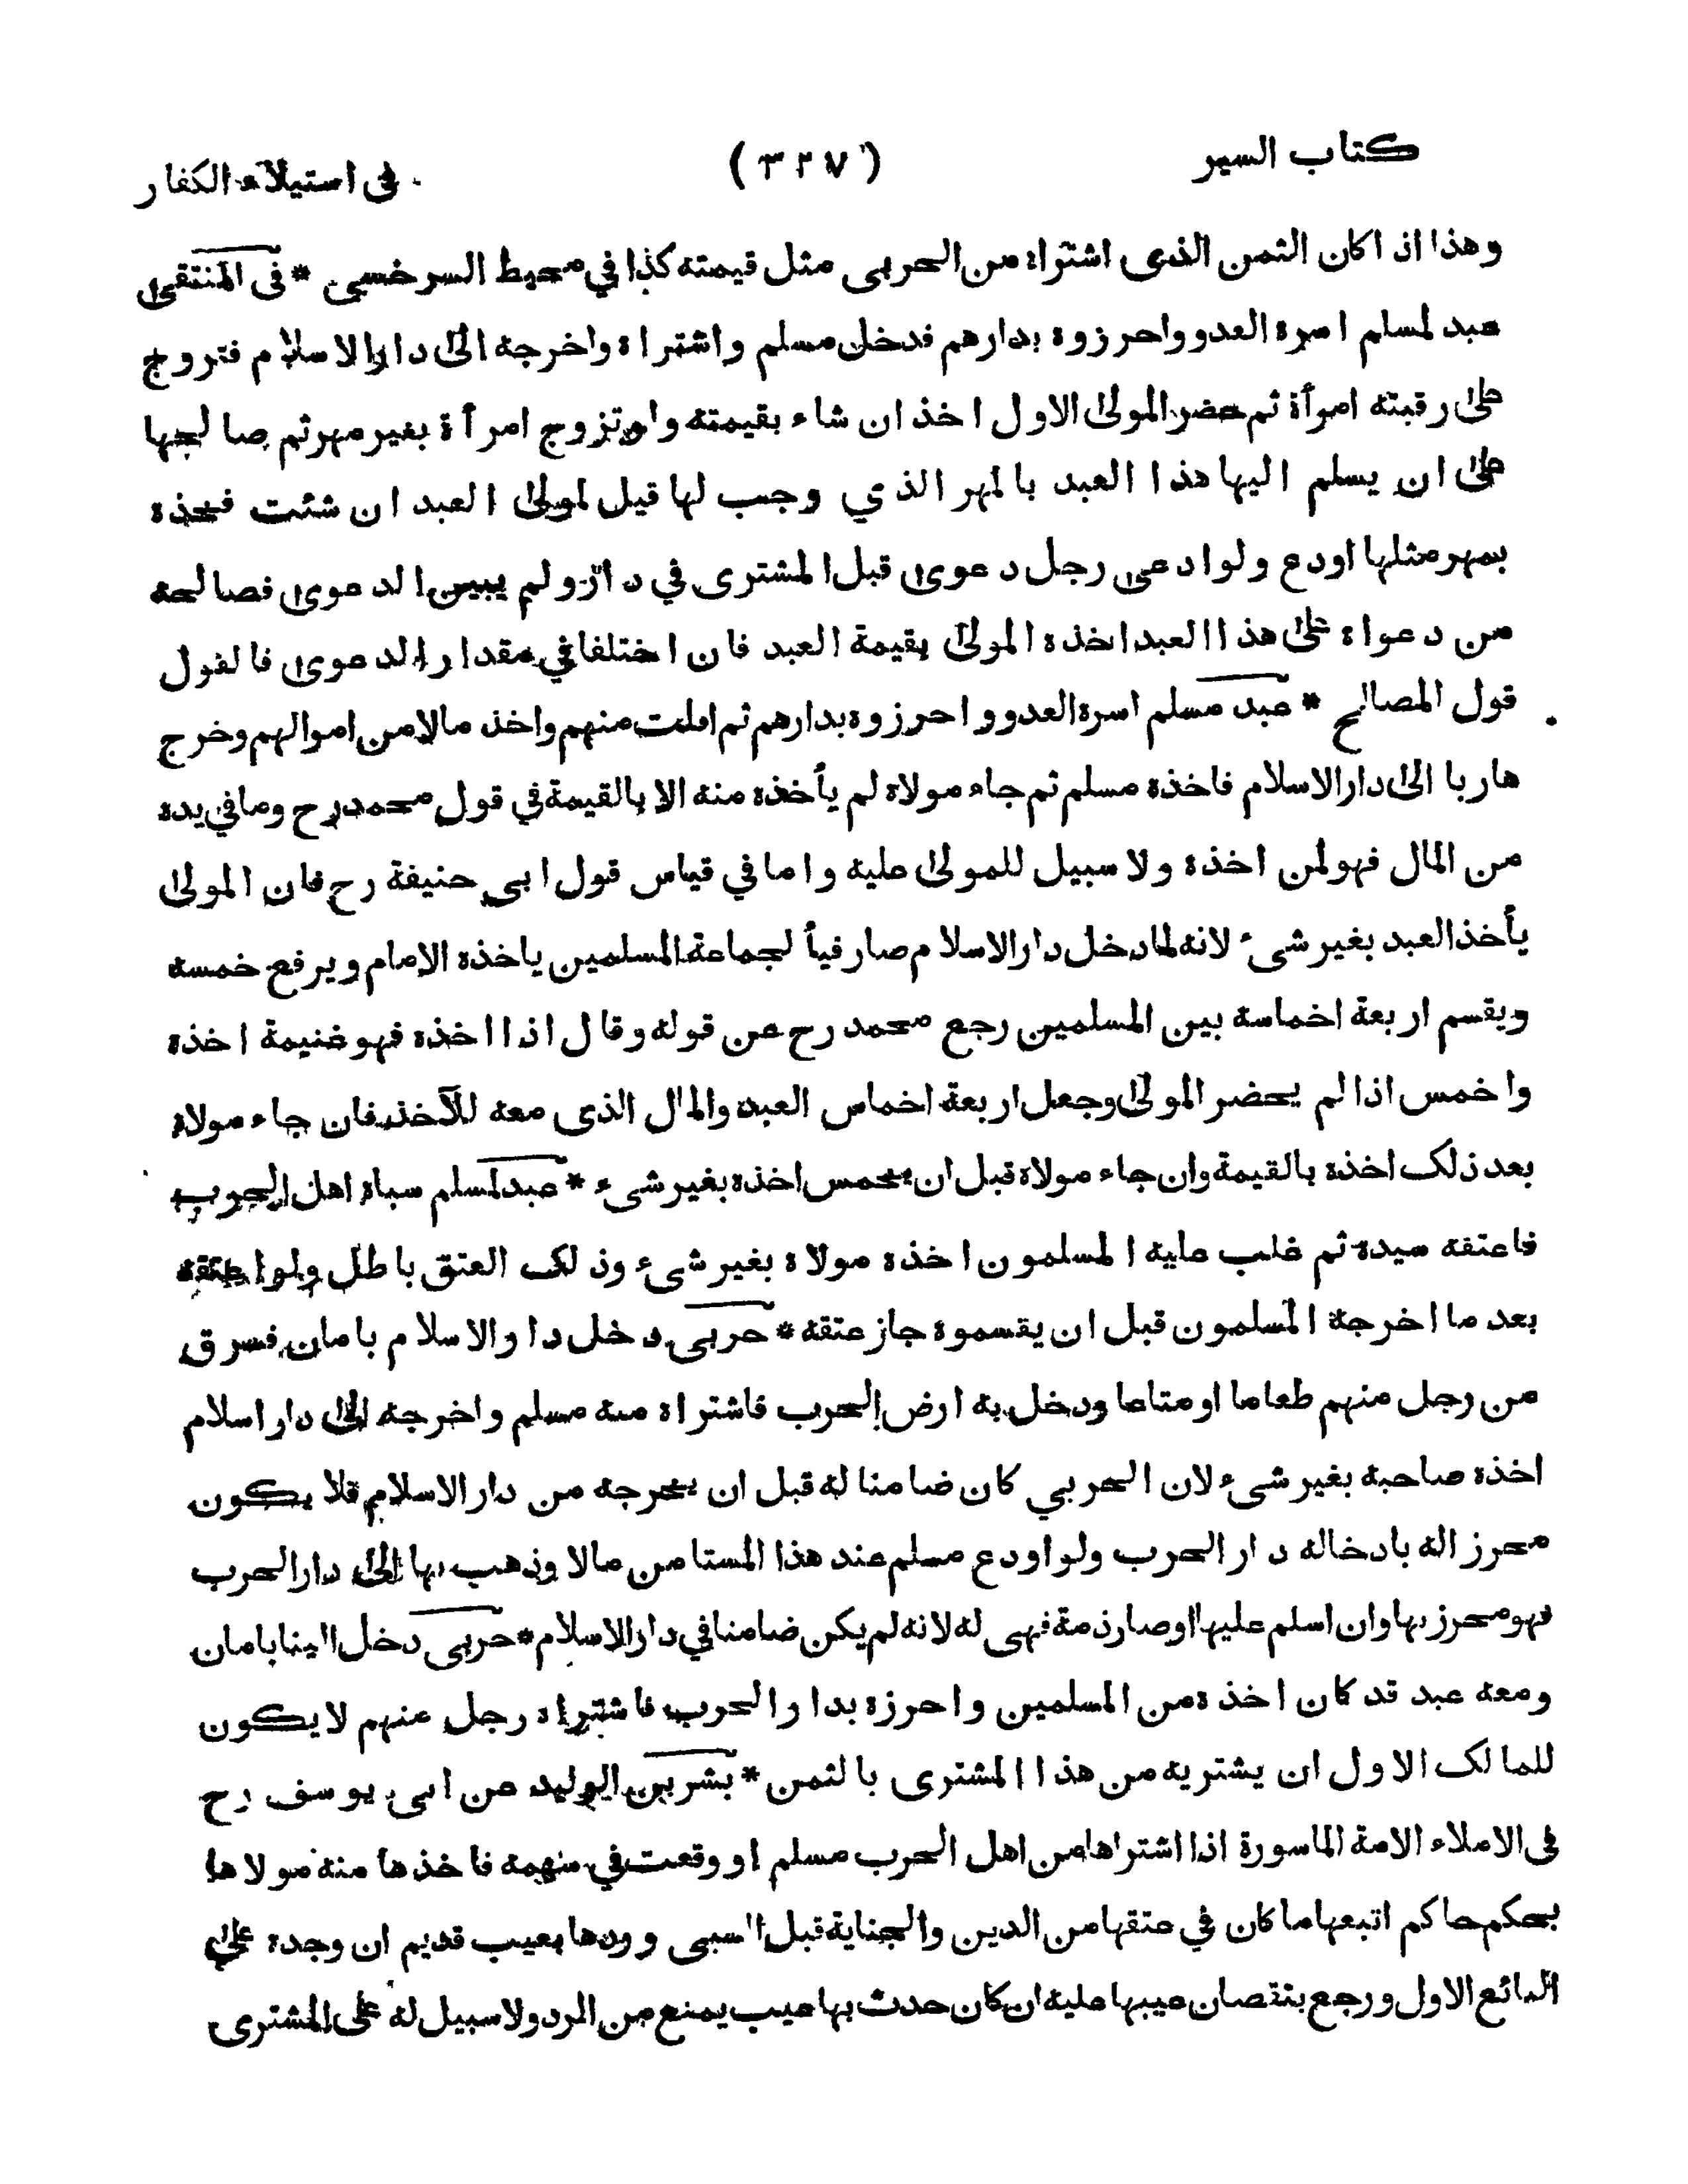 كتاب السير (٣٢٧) فى استيلآء الكفار
وهذا اذا كان الثمن الذى اشتراه من الحربى مثل قيمته كذا في محيط السرخسى * فى المنتقى
عبد لمسلم اسره العدو واحرزوه بدارهم فدخل مسلم واشتراه واخرجه الى دار الاسلام فتروج
على رقبته امرأة ثم حضر المولى الاول اخذ ان شاء بقيمته ولو تزوج امرأة بغير مهر ثم صالحها
على ان يسلم اليها هذا العبد بالمهر الذي وجب لها قيل لمولى العبد ان شئت فخذه
بمهر مثلها اودع ولوادعى رجل دعوى قبل المشترى في دار ولم يبين الدعوى فصالحه
من دعواه على هذا العبد اخذه المولى بقيمة العبد فان اختلفا في مقدار الدعوى فالقول
قول المصالح * عبد مسلم اسره العدو واحرزوه بدارهم ثم افلت منهم واخذ مالا من اموالهم وخرج
هاربا الى دار الاسلام فاخذه مسلم ثم جاء مولاه لم يأخذه منه الا بالقيمة في قول محمد رح وما في يده
من المال فهو لمن اخذه ولا سبيل للمولى عليه واما في قياس قول ابى حنيفة رح فان المولى
يأخذ العبد بغير شىء لانه لما دخل دار الاسلام صار فيأ لجماعة المسلمين ياخذه الامام ويرفع خمسه
ويقسم اربعة اخماسه بين المسلمين رجع محمد رح عن قوله وقال اذا اخذه فهو غنيمة اخذه
واخمس اذا لم يحضر المولى وجعل اربعة اخماس العبد والمال الذى معه للآخذ فان جاء مولاه
بعد ذلك اخذه بالقيمة وان جاء مولاه قبل ان يخمس اخذه بغير شىء * عبد لمسلم سباه اهل الحرب
فاعتقه سيده ثم غلب عليه المسلمون اخذه مولاه بغير شىء وذلك العتق باطل ولو اعتقه
بعد ما اخرجه المسلمون قبل ان يقسموه جاز عتقه * حربى دخل دار الاسلام بامان فسرق
من رجل منهم طعاما او متاعا ودخل به ارض الحرب فاشتراه منه مسلم واخرجه الى دار اسلام
اخذه صاحبه بغير شىء لان الحربي كان ضامنا له قبل ان يخرجه من دار الاسلام فلا يكون
محرزا له بادخاله دار الحرب ولو اودع مسلم عند هذا المستامن مالا وذهب بها الى دار الحرب
فهو محرز بها وان اسلم عليها او صار ذمة فهى له لانه لم يكن ضامنا في دار الاسلام * حربى دخل الينا بامان
ومعه عبد قد كان اخذه من المسلمين واحرزه بدار الحرب فاشتراه رجل منهم لا يكون
للمالك الاول ان يشتريه من هذا المشترى بالثمن * بشر بن الوليد عن ابى يوسف رح
فى الاملاء الامة الماسورة اذا اشتراها من اهل الحرب مسلم او وقعت في سهمه فاخذها منه مولاها
بحكم حاكم اتبعها ما كان في عتقها من الدين والجناية قبل السبى وردها بعيب قديم ان وجده على
البائع الاول ورجع بنقصان عيبها عليه ان كان حدث بها عيب يمنع من الرد ولا سبيل له على المشترى